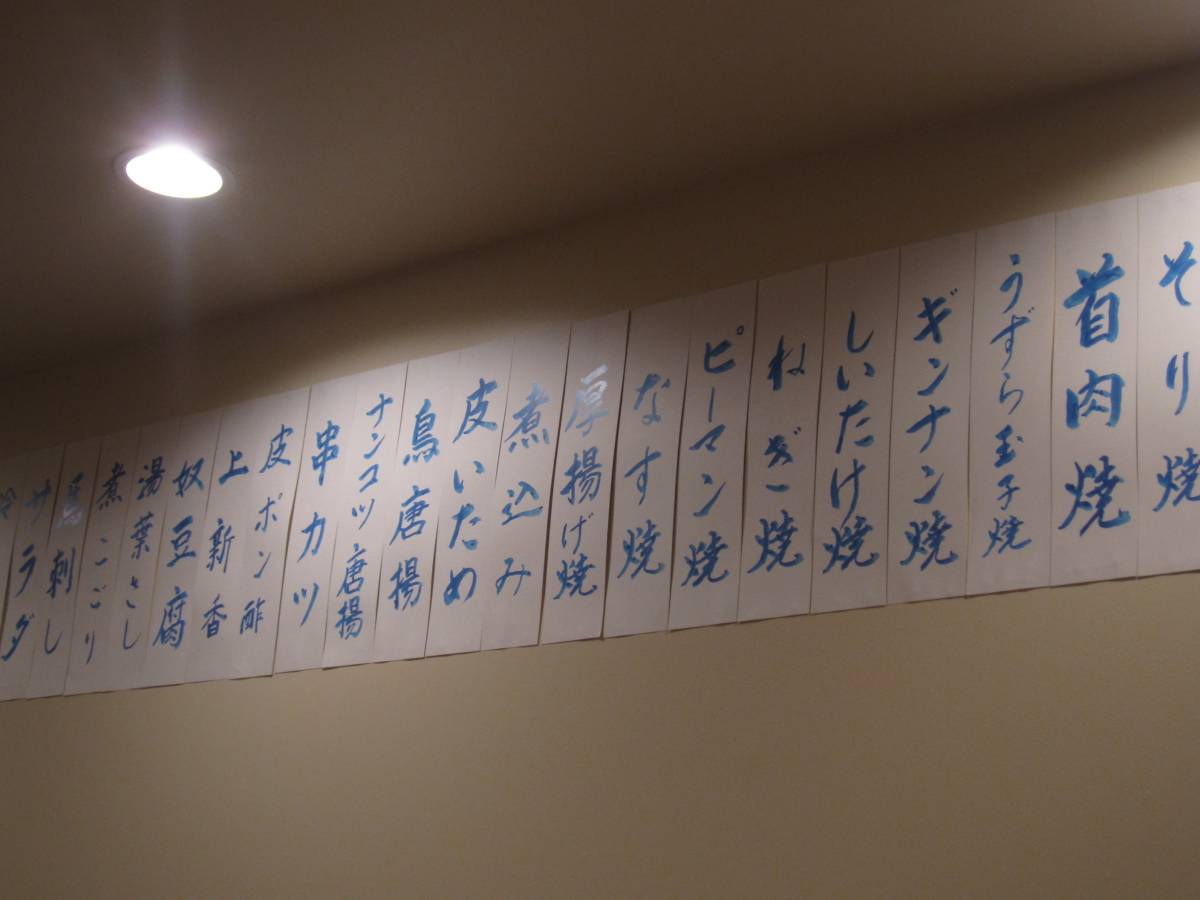 そり焼
首肉焼
うずら玉子焼
ギンナン焼
しいたけ焼
ねぎ焼
ピーマン焼
なす焼
厚揚げ焼
煮込み
皮いため
鳥唐揚
ナンコツ唐揚
串カツ
皮ポン酢
上新香
奴豆腐
湯葉さし
煮こごり
鳥刺し
サラダ
冷